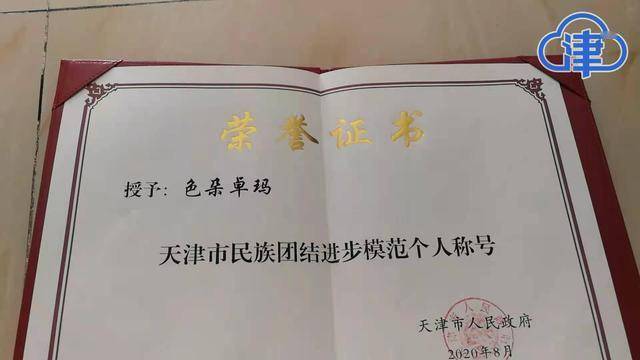 津
荣誉证书
授予：色朵卓玛
天津市民族团结进步模范个人称号
天津市人民政府
2020年8月